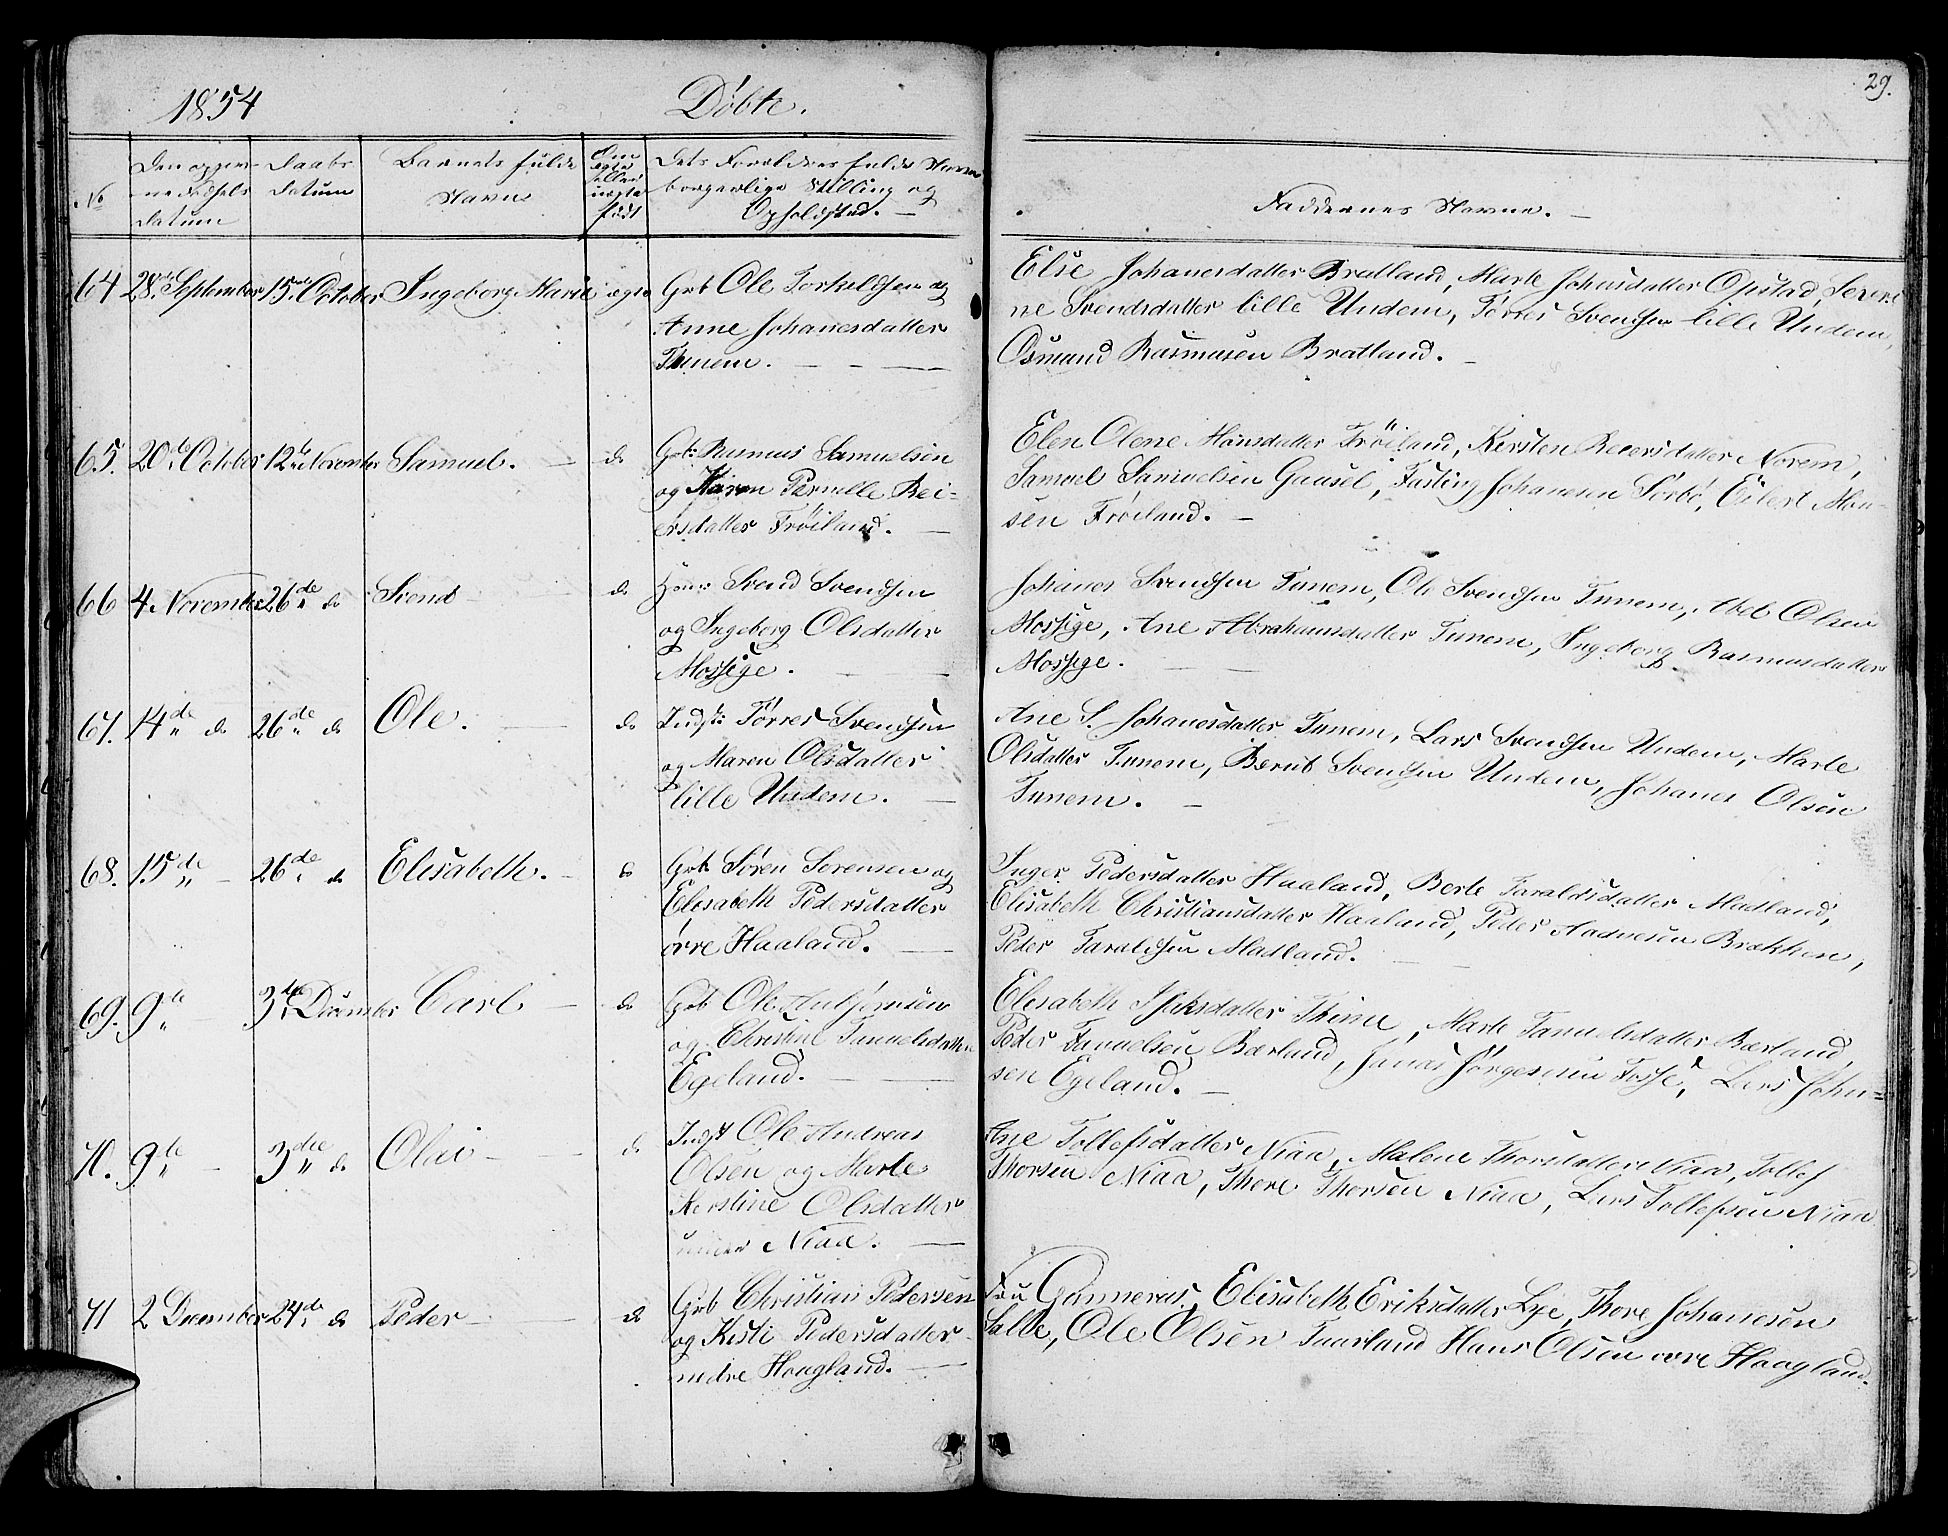 1854
Døbte.
29.
No
Den opgivne Fødsels Datum
Daabs Datum
Barnets fulde Navne
Om ægte eller uægte født
Dets Forældres fulde Navne borgerlige Stilling og Opholdsted. —
Faddernes Navne. —
64 28de September 15de October Ingeborg Marie ægte
Grb Ole Torkelsen og
Anne Johanesdatter
Tunem. — — —
Else Johanesdatter Bratland, Marte Johnsdatter Opstad, Sere-
ne Svendsdatter lille Undem, Tørres Svendsen lille Undem,
Osmund Rasmusen Bratland. —
65. 20de October 12te November Samuel. — do
Grb: Rasmus Samuelsen
og Karen Pernelle Rei-
ersdatter Frøiland. —
Elen Olene Monsdatter Frøiland, Kersten Reiersdatter Norem,
Samuel Samuelsen Gausel, Fasting Johanesen Sørbø, Eilert Mon-
sen Frøiland. —
66 4 November 26de do Svend do
Svend Svendsen
og Ingeborg Olsdatter
Mossige. —
Johanes Svendsen Tunem, Ole Svendsen Tunem, Abel Olsen
Mossige, Ane Abrahamsdatter Tunem, Ingeborg Rasmusdatter
Mossige. —
67. 14de do 26de do Ole. — do
Indst: Tørres Svendsen
og Maren Olsdatter
lille Undem. —
Ane S. Johanesdatter Tunem, Lars Svendsen Undem, Marte
Olsdatter Tunem, Bernt Svendsen Undem, Johanes Olsen
Tunem. —
68. 15de — 26de do Elisabeth. — do
Grb Søren Sørensen og
Elisabeth Pedersdatter
øvre Haaland. —
Inger Pedersdatter Haaland, Berte Taraldsdatter Madland,
Elisabeth Christiansdatter Haaland, Peder Aadnesen Brekken,
Peder Taraldsen Madland. —
69. 9de — 3die December Carl — do
Grb Ole
og Christine Tanuelsdatter
Egeland. —
Elisabeth Thime, Marte Tanuelsdatter Bærland,
Peder Tanuelsen Bærland, Jonas Jørgensen Fosse, Lars John-
sen Egeland. —
70. 9de — 3die do Olai — do
Indst Ole Andreas
Olsen og Marte
Kerstine Olsdatter
Niaa. —
Ane Tollefsdatter Niaa, Malene Thorsdatter Niaa, Tollef
Thorsen Niaa, Thore Thorsen Niaa, Lars Tollefsen Niaa
71 2 December 24de do Peder — do
Grb Christian Pedersen
og Kisti Pedersdatter
nedre Høagland. —
Fru Gunneras, Elisabeth Eriksdatter Lye, Thore Johanesen
Salte, Ole Olsen Taarland Hans Olsen øvre Høagland.